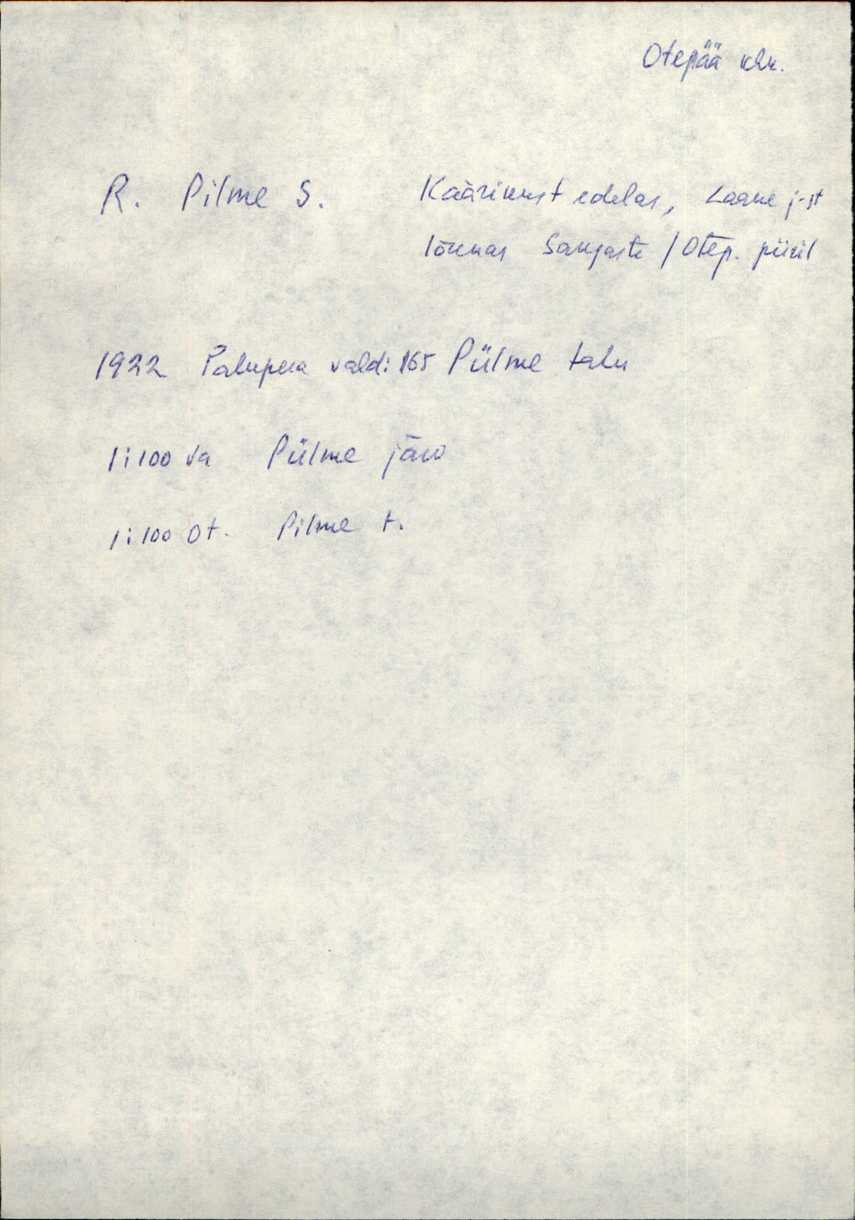 Otepää khk.
R. Pilme S. Käärikust edelas, Laane j-st
lõunas Sangaste / Otep. piiril
1922 Palupera vald: 165 Pülme talu
1:100 Va Pülme järv
1:100 Ot. Pilme t.